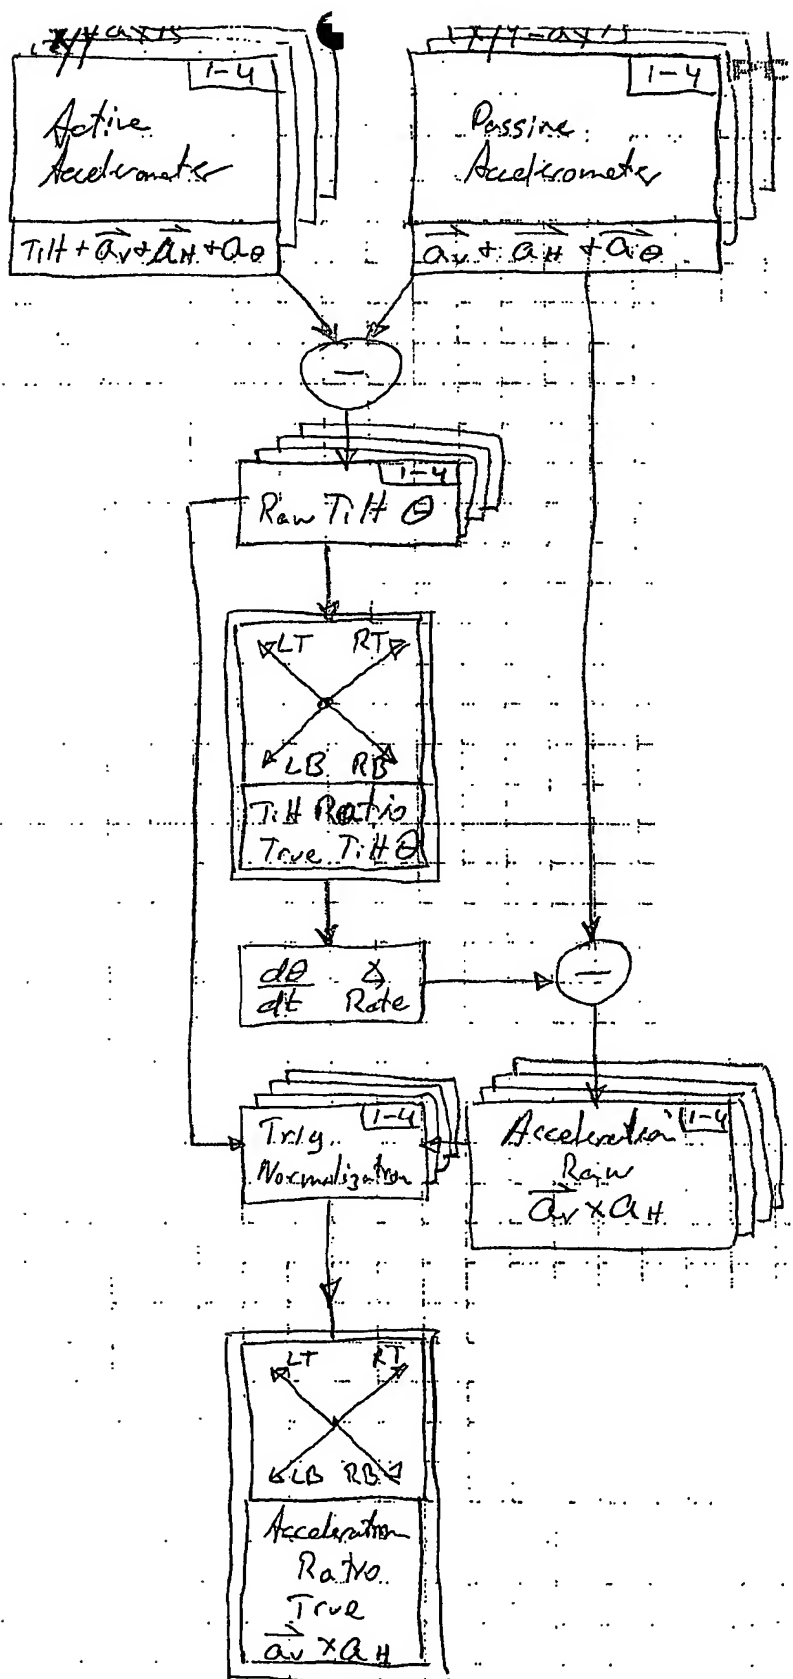 x/y axis
1-4
Active
Accelerometer
Tilt + a⃗v + a⃗H + aθ
x/y-axis
1-4
Passive
Accelerometer
a⃗v + a⃗H + a⃗θ
−
1-4
Raw Tilt θ
LT RT
LB RB
Tilt Ratio
True Tilt θ
dθ/dt
Rate
−
1-4
Trig
Normalization
Acceleration 1-4
Raw
a⃗v × aH
LT RT
LB RB
Acceleration
Ratio
True
a⃗v × aH